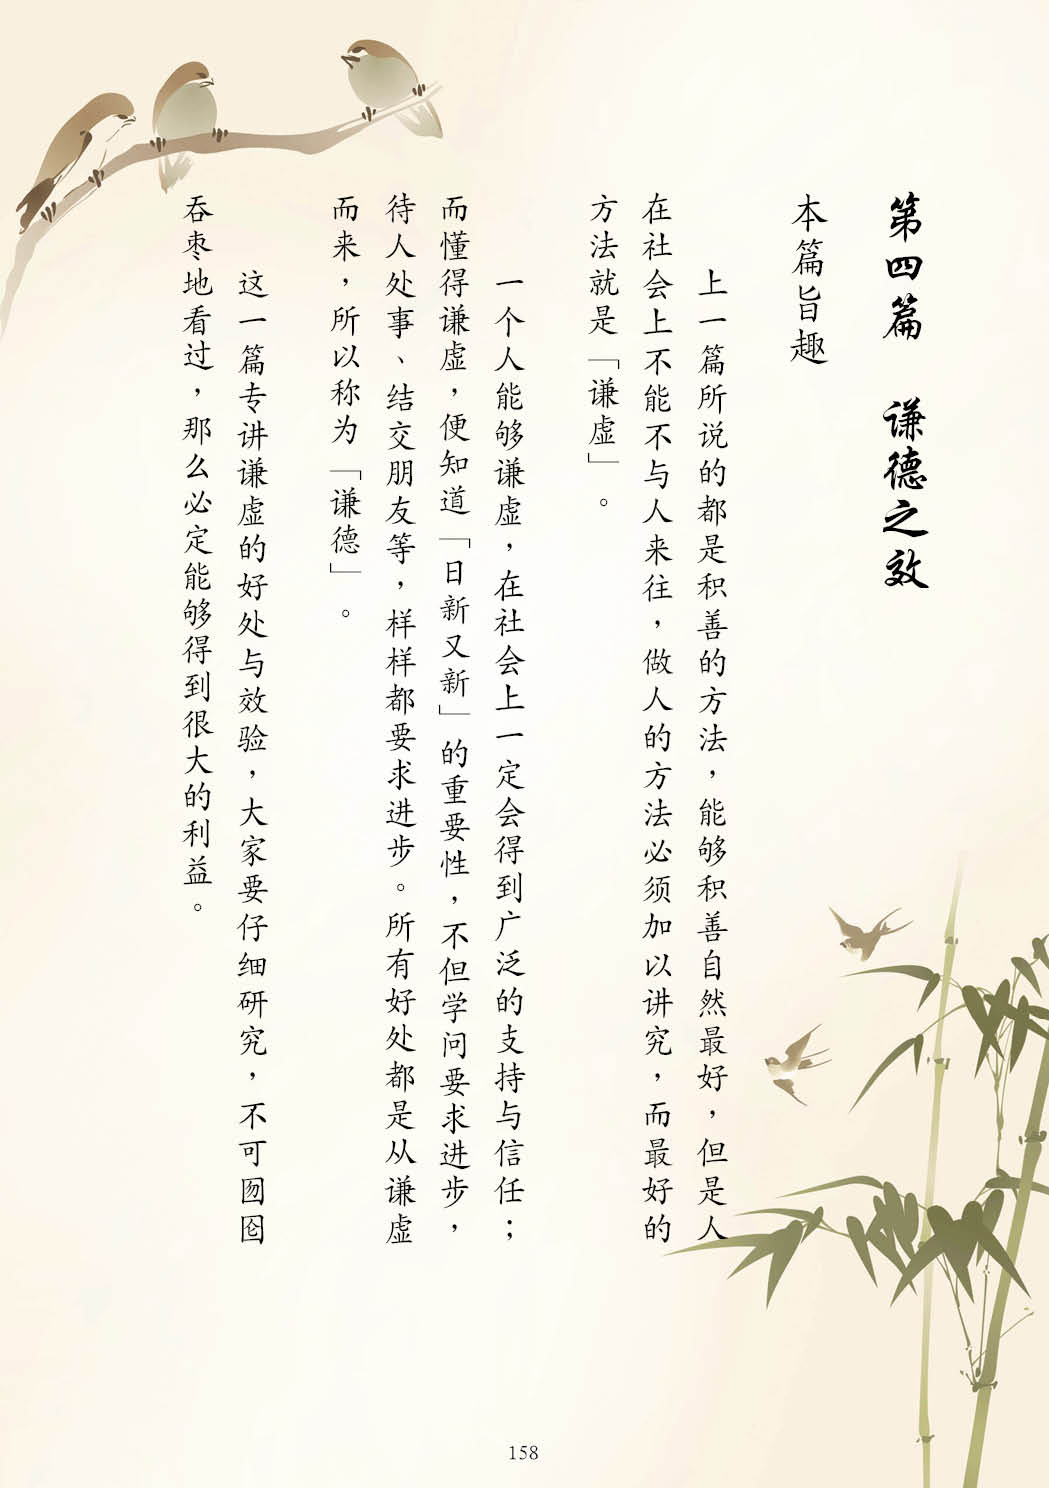 第四篇　谦德之效
本篇旨趣
上一篇所说的都是积善的方法，能够积善自然最好，但是人
在社会上不能不与人来往，做人的方法必须加以讲究，而最好的
方法就是「谦虚」。
一个人能够谦虚，在社会上一定会得到广泛的支持与信任；
而懂得谦虚，便知道「日新又新」的重要性，不但学问要求进步，
待人处事、结交朋友等，样样都要求进步。所有好处都是从谦虚
而来，所以称为「谦德」。
这一篇专讲谦虚的好处与效验，大家要仔细研究，不可囫囵
吞枣地看过，那么必定能够得到很大的利益。
158